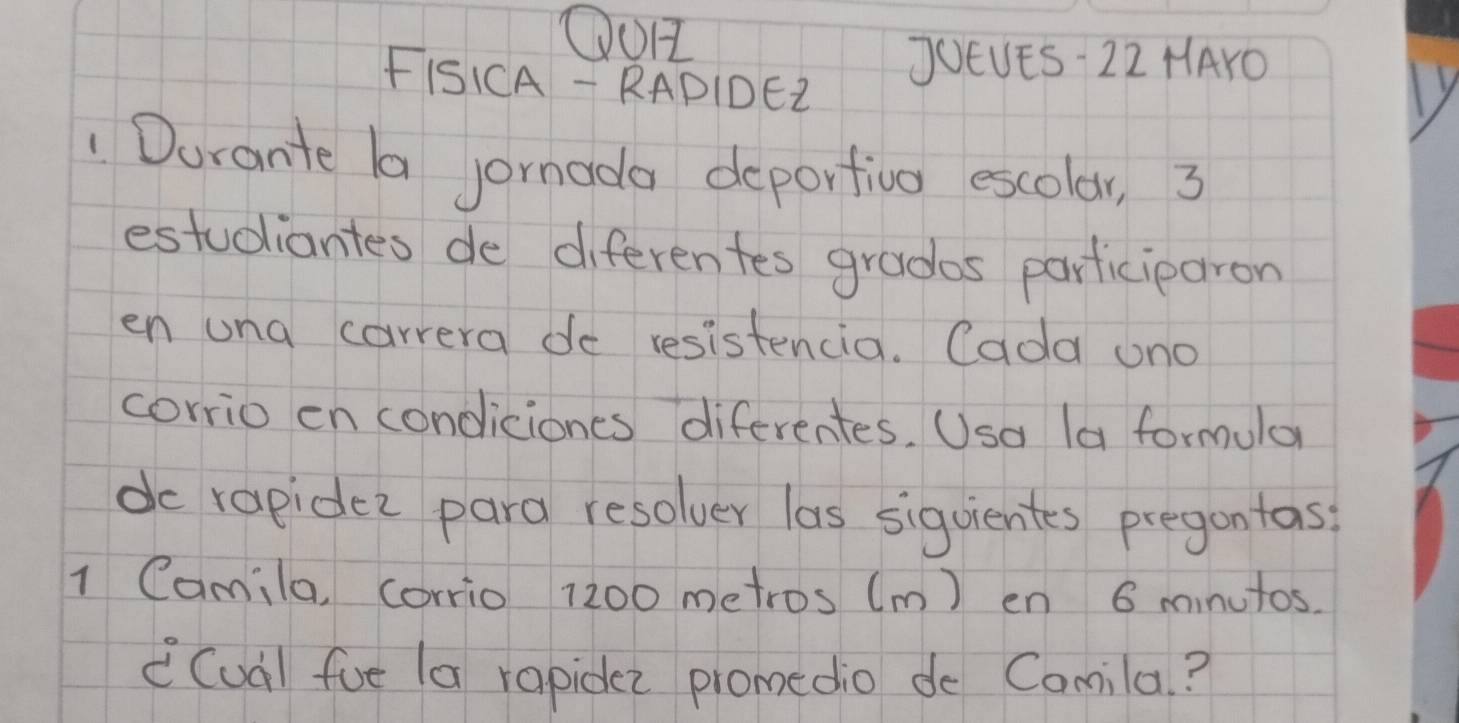 QUIZ
FISICA - RAPIDEZ
JUEVES - 22 MAYO
1. Durante la jornada deportiva escolar, 3
estudiantes de diferentes grados participaron
en una carrera de resistencia. Cada uno
corrio en condiciones diferentes. Usa la formula
de rapidez para resolver las siguientes preguntas:
1 Camila, corrio 1200 metros (m) en 6 minutos.
¿Cuál fue la rapidez promedio de Camila.?